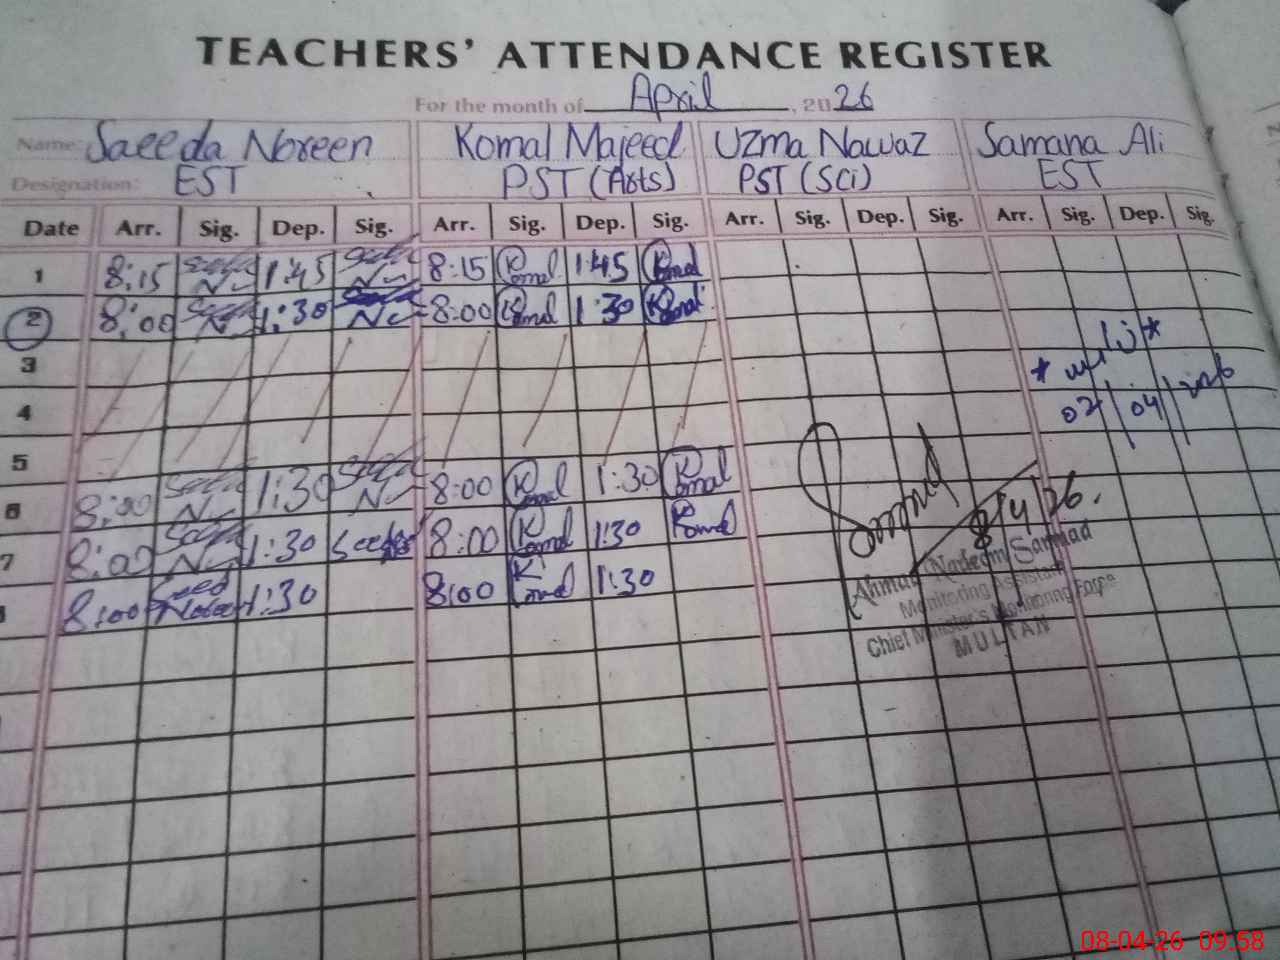 TEACHERS' ATTENDANCE REGISTER
For the month of April, 2026
Name: Saeeda Noreen Komal Majeed Uzma Nawaz Samana Ali
Designation: EST PST (Arts) PST (Sci) EST
Date Arr. Sig. Dep. Sig. Arr. Sig. Dep. Sig. Arr. Sig. Dep. Sig. Arr. Sig. Dep. Sig.
1 8:15 1:45 8:15 Komal 1:45 Komal
2 8:00 1:30 8:00 Komal 1:30 Komal
3
4
02/04/
5
6 8:00 1:30 8:00 Komal 1:30 Komal
7 8:00 1:30 8:00 Komal 1:30 Komal
8/4/26.
8:00 1:30 8:00 Komal 1:30
Ahmad Nadeem Sarmad
Monitoring Assistant
Chief Minister's Monitoring Force
MULTAN
08-04-26 09:58